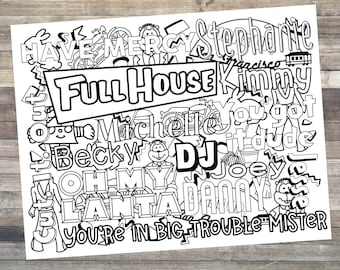 HAVE MERCY
Stephanie
San Francisco
FULL HOUSE
Kimmy
Michelle
You got
it dude
Becky
DJ
Joey
Jesse
OH MY
LANTA
DANNY
YOU'RE IN BIG TROUBLE MISTER